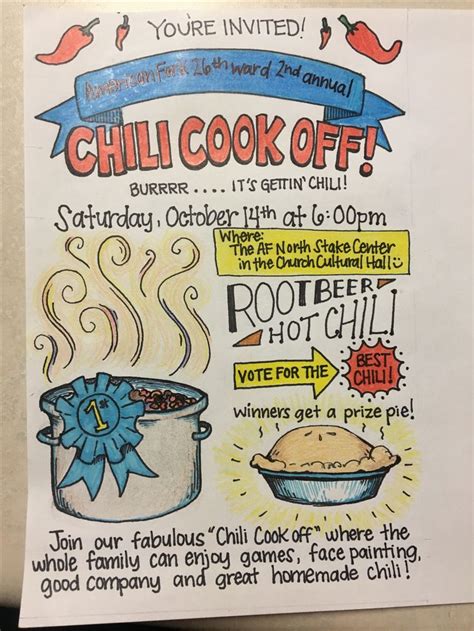 YOU'RE INVITED!
American Fork 26th ward 2nd annual
CHILI COOK OFF!
BURRRR .... IT'S GETTIN' CHILI!
Saturday, October 14th at 6:00pm
Where:
The AF North Stake Center
in the Church Cultural Hall
ROOTBEER
HOT CHILI
VOTE FOR THE
BEST
CHILI!
winners get a prize pie!
1st
Join our fabulous "Chili Cook off" where the
whole family can enjoy games, face painting,
good company and great homemade chili!